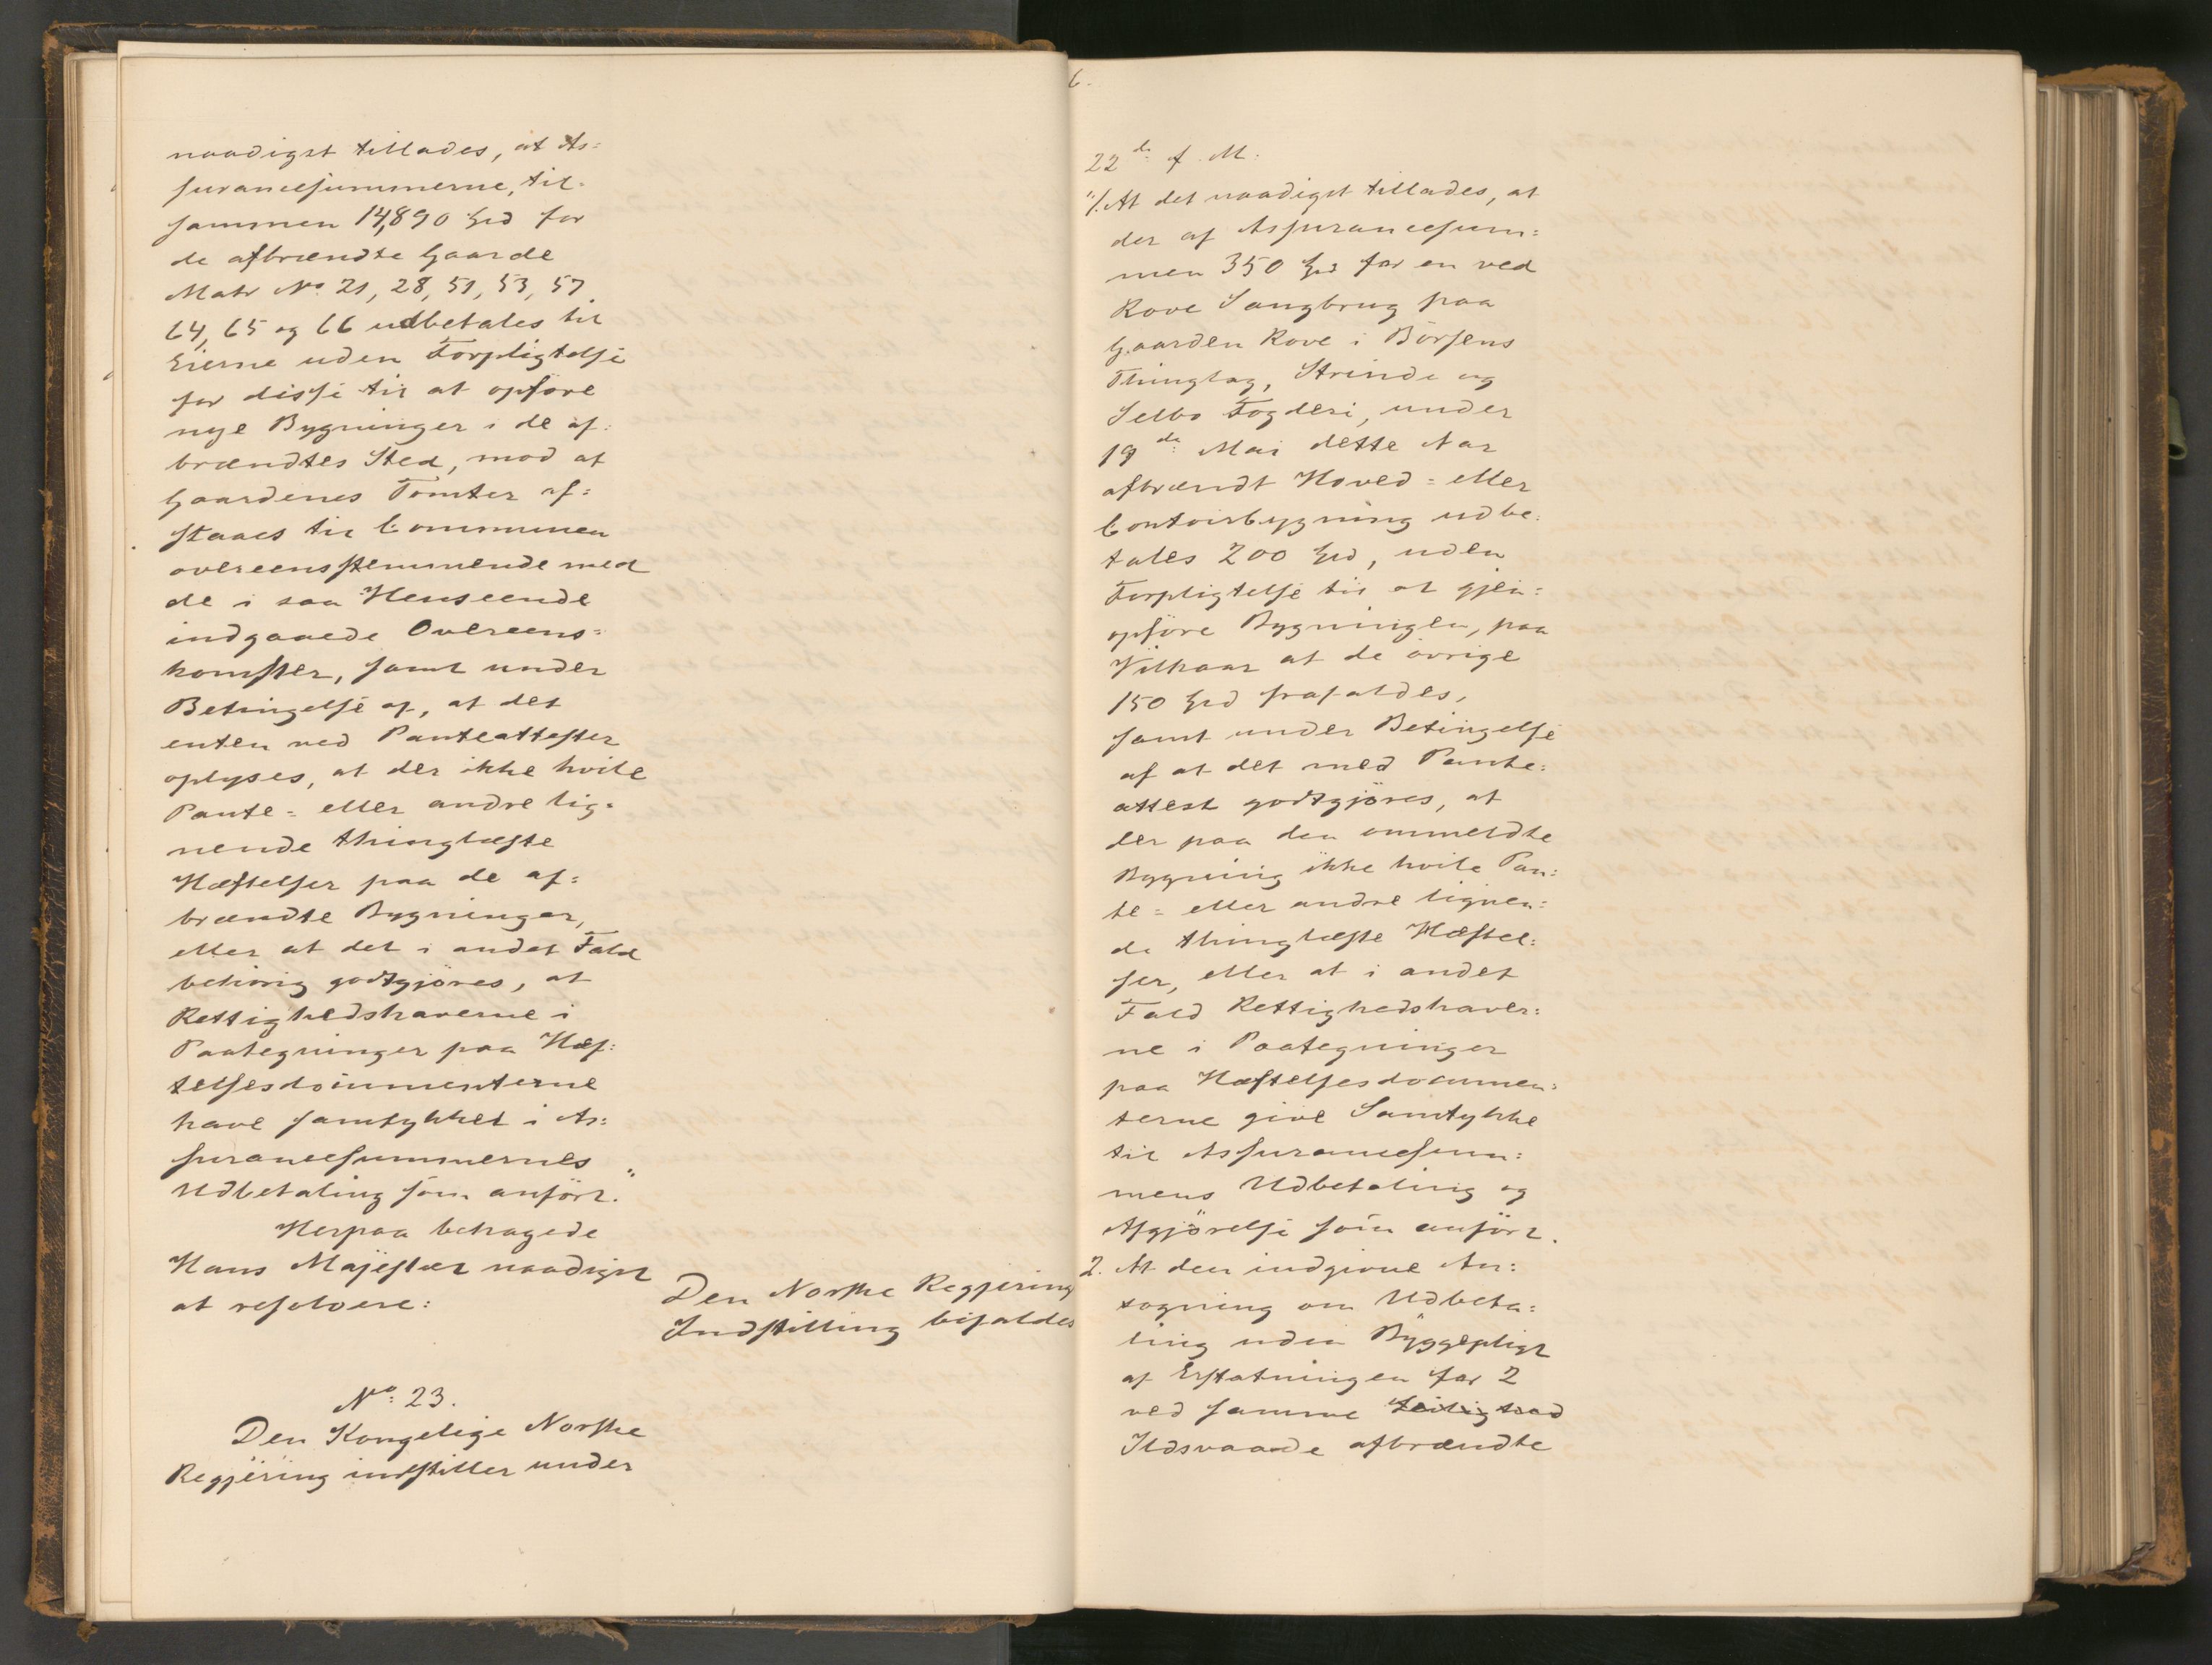 naadigst tillades, at As=
surancesummerne, til=
sammen 14,890 Spd for
de afbrændte Gaarde
Matr No 21, 28, 51, 53, 57,
64, 65 og 66 udbetales til
Eierne uden Forpligtelse
for disse til at opføre
nye Bygninger i de af=
brændtes Sted, mod at
Gaardenes Tomter af=
staaes til Communen
overeensstemmende med
de i saa Henseende
indgaaede Overeens=
komster, samt under
Betingelse af, at det
enten ved Panteattester
oplyses, at der ikke hvile
Pante= eller andre lig=
nende thinglæste
Hæftelser paa de af=
brændte Bygninger,
eller at det i andet Fald
behörig godtgjöres, at
Rettighedshaverne i
Paategninger paa Hæf=
telsesdocumenterne
have samtykket i As=
surancesummernes
Udbetaling som anfört."
Herpaa behagede
Hans Majestæt naadigst
at resolvere:
Den Norske Regjerings
Indstilling bifaldes
No: 23.
Den Kongelige Norske
Regjering indstiller under
6.
22de f. M:
"1. At det naadigst tillades, at
der af Assurancesum=
men 350 Spd for en ved
Rove Saugbrug paa
Gaarden Rove i Börsens
Thinglag, Strinde og
Selbo Fogderi, under
19de Mai dette Aar
afbrændt Hoved= eller
Contoirbygning udbe=
tales 200 Spd, uden
Forpligtelse til at gjen=
opföre Bygningen, paa
Vilkaar at de övrige
150 Spd frafaldes,
samt under Betingelse
af at det med Pante=
attest godtgjöres, at
der paa den ommeldte
Bygning ikke hvile Pan=
te= eller andre lignen=
de thinglæste Hæftel=
ser, eller at i andet
Fald Rettighedshaver=
ne i Paategninger
paa Hæftelsesdocumen=
terne give Samtykke
til Assurancesum=
mens Udbetaling og
Afgjörelse som anfört.
2. At den indgivne An=
søgning om Udbeta=
ling uden Byggepligt
af Erstatningen for 2
ved samme Leilighed
Ildsvaade afbrændte